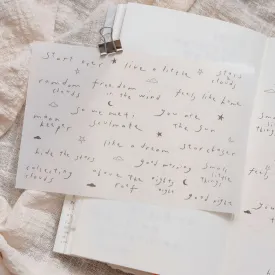 Start over like a little stars & clouds
random clouds freedom in the wind feels like home
moon keeper so me met: soulmate you are the sun
like a dream stargazer
hide the stars good morning small little things
collecting clouds above the nights roof night good night